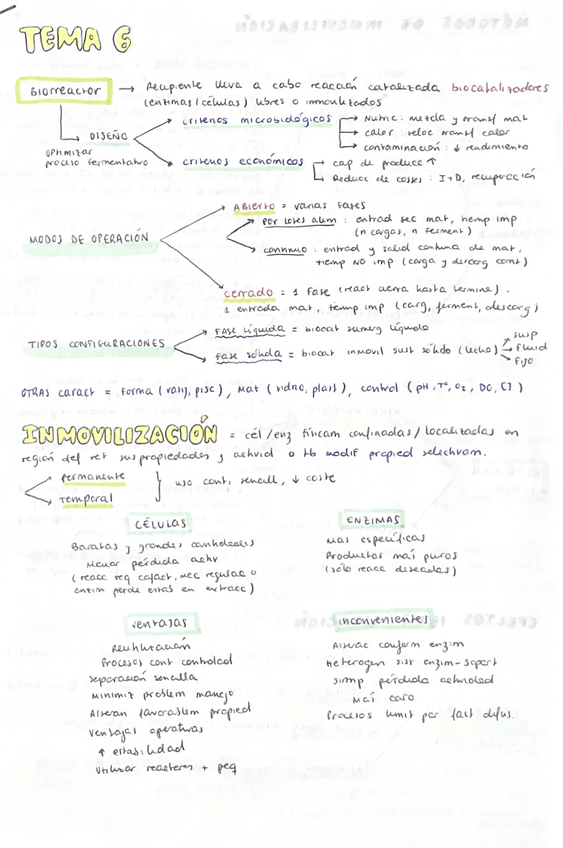 TEMA 6
Biorreactor → Recipiente lleva a cabo reacción catalizada biocatalizadores
(enzimas/células) libres o inmovilizados
DISEÑO
optimizar
proceso fermentativo
criterios microbiológicos
Nutric: mezcla y transf mat
calor: veloc transf calor
contaminación: ↓ rendimiento
criterios económicos
cap de produce ↑
Reduce de costes: I+D, recuperación
MODOS DE OPERACIÓN
Abierto = varias fases
por lotes alim: entrad sec mat, tiemp imp
(n cargas, n ferment)
continuo: entrad y salid continua de mat,
tiemp NO imp (carga y descarg cont)
cerrado = 1 fase (react cierra hasta termine).
1 entrada mat, temp imp (carg, ferment, descarg)
TIPOS CONFIGURACIONES
FASE líquida = biocat sumerg líquido
fase sólida = biocat inmovil sust sólido (lecho)
susp
fluid
fijo
OTRAS caract = forma (, pisc), Mat (vidrio, plast), control (pH, Tº, O₂, DO, CT)
INMOVILIZACIÓN = cél/enz físicam confinadas/localizadas en
región def ret sus propiedades y activid o tb modif propied selectivam.
permanente
Temporal
uso cont, sencill, ↓ coste
CÉLULAS
Baratas y grandes cantidades
Menor pérdida activ
(reacc req cofact, mec regulac o
enzim pierde estas en extracc)
ENZIMAS
Mas específicas
Productos más puros
(sólo reacc deseadas)
ventajas
Reutilización
Procesos cont controlad
separación sencilla
Minimiz problem manejo
Alteran favorablem propied
Ventajas operativas
↑ estabilidad
Utilizar reactores + peq
inconvenientes
Alterac conform enzim
Heterogen sist enzim-soport
simp pérdida actividad
Mas caro
Procesos limit por fact difus.